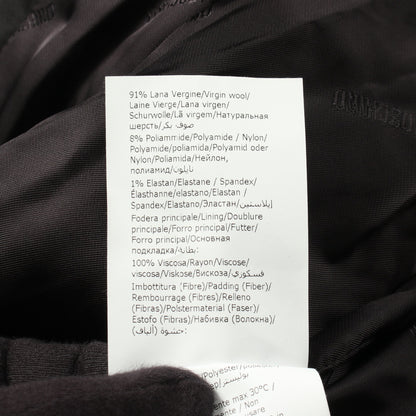 91% Lana Vergine/Virgin wool/
Laine Vierge/Lana virgen/
Schurwolle/Lã virgem/Натуральная
шерсть/صوف بكر/
8% Poliammide/Polyamide / Nylon/
Polyamide/poliamida/Polyamid oder
Nylon/Poliamida/Нейлон,
полиамид/نايلون/
1% Elastan/Elastane / Spandex/
Élasthanne/elastano/Elastan /
Spandex/Elastano/Эластан/إيلاستين/
Fodera principale/Lining/Doublure
principale/Forro principal/Futter/
Forro principal/Основная
подкладка/بطانة/
100% Viscosa/Rayon/Viscose/
viscosa/Viskose/Вискоза/فسكوزي/
Imbottitura (Fibre)/Padding (Fiber)/
Rembourrage (Fibres)/Relleno
(Fibras)/Polstermaterial (Faser)/
Estofo (Fibras)/Набивка (Волокна)/
حشوة (ألياف)/
/Polyester/
بوليستر/
ente max 30°C/
ente / Non
usare